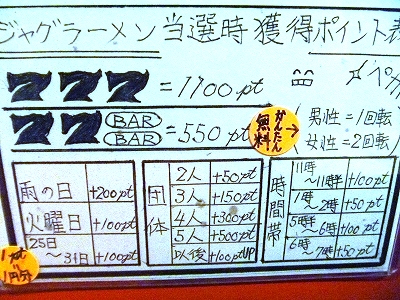 ジャグラーメン当選時獲得ポイント表
777=1700pt
ペカ
77 BAR BAR =550pt
かんたん
無料!
→
男性=1回転
女性=2回転
雨の日 +200pt
火曜日 +100pt
25日~31日 +100pt
団体
2人 +50pt
3人 +150pt
4人 +300pt
5人 +500pt
以後 +100ptUP
時間帯
11時~11時半 +100pt
1時~2時 +50pt
5時半~6時 +100pt
6時~7時 +50pt
1円分